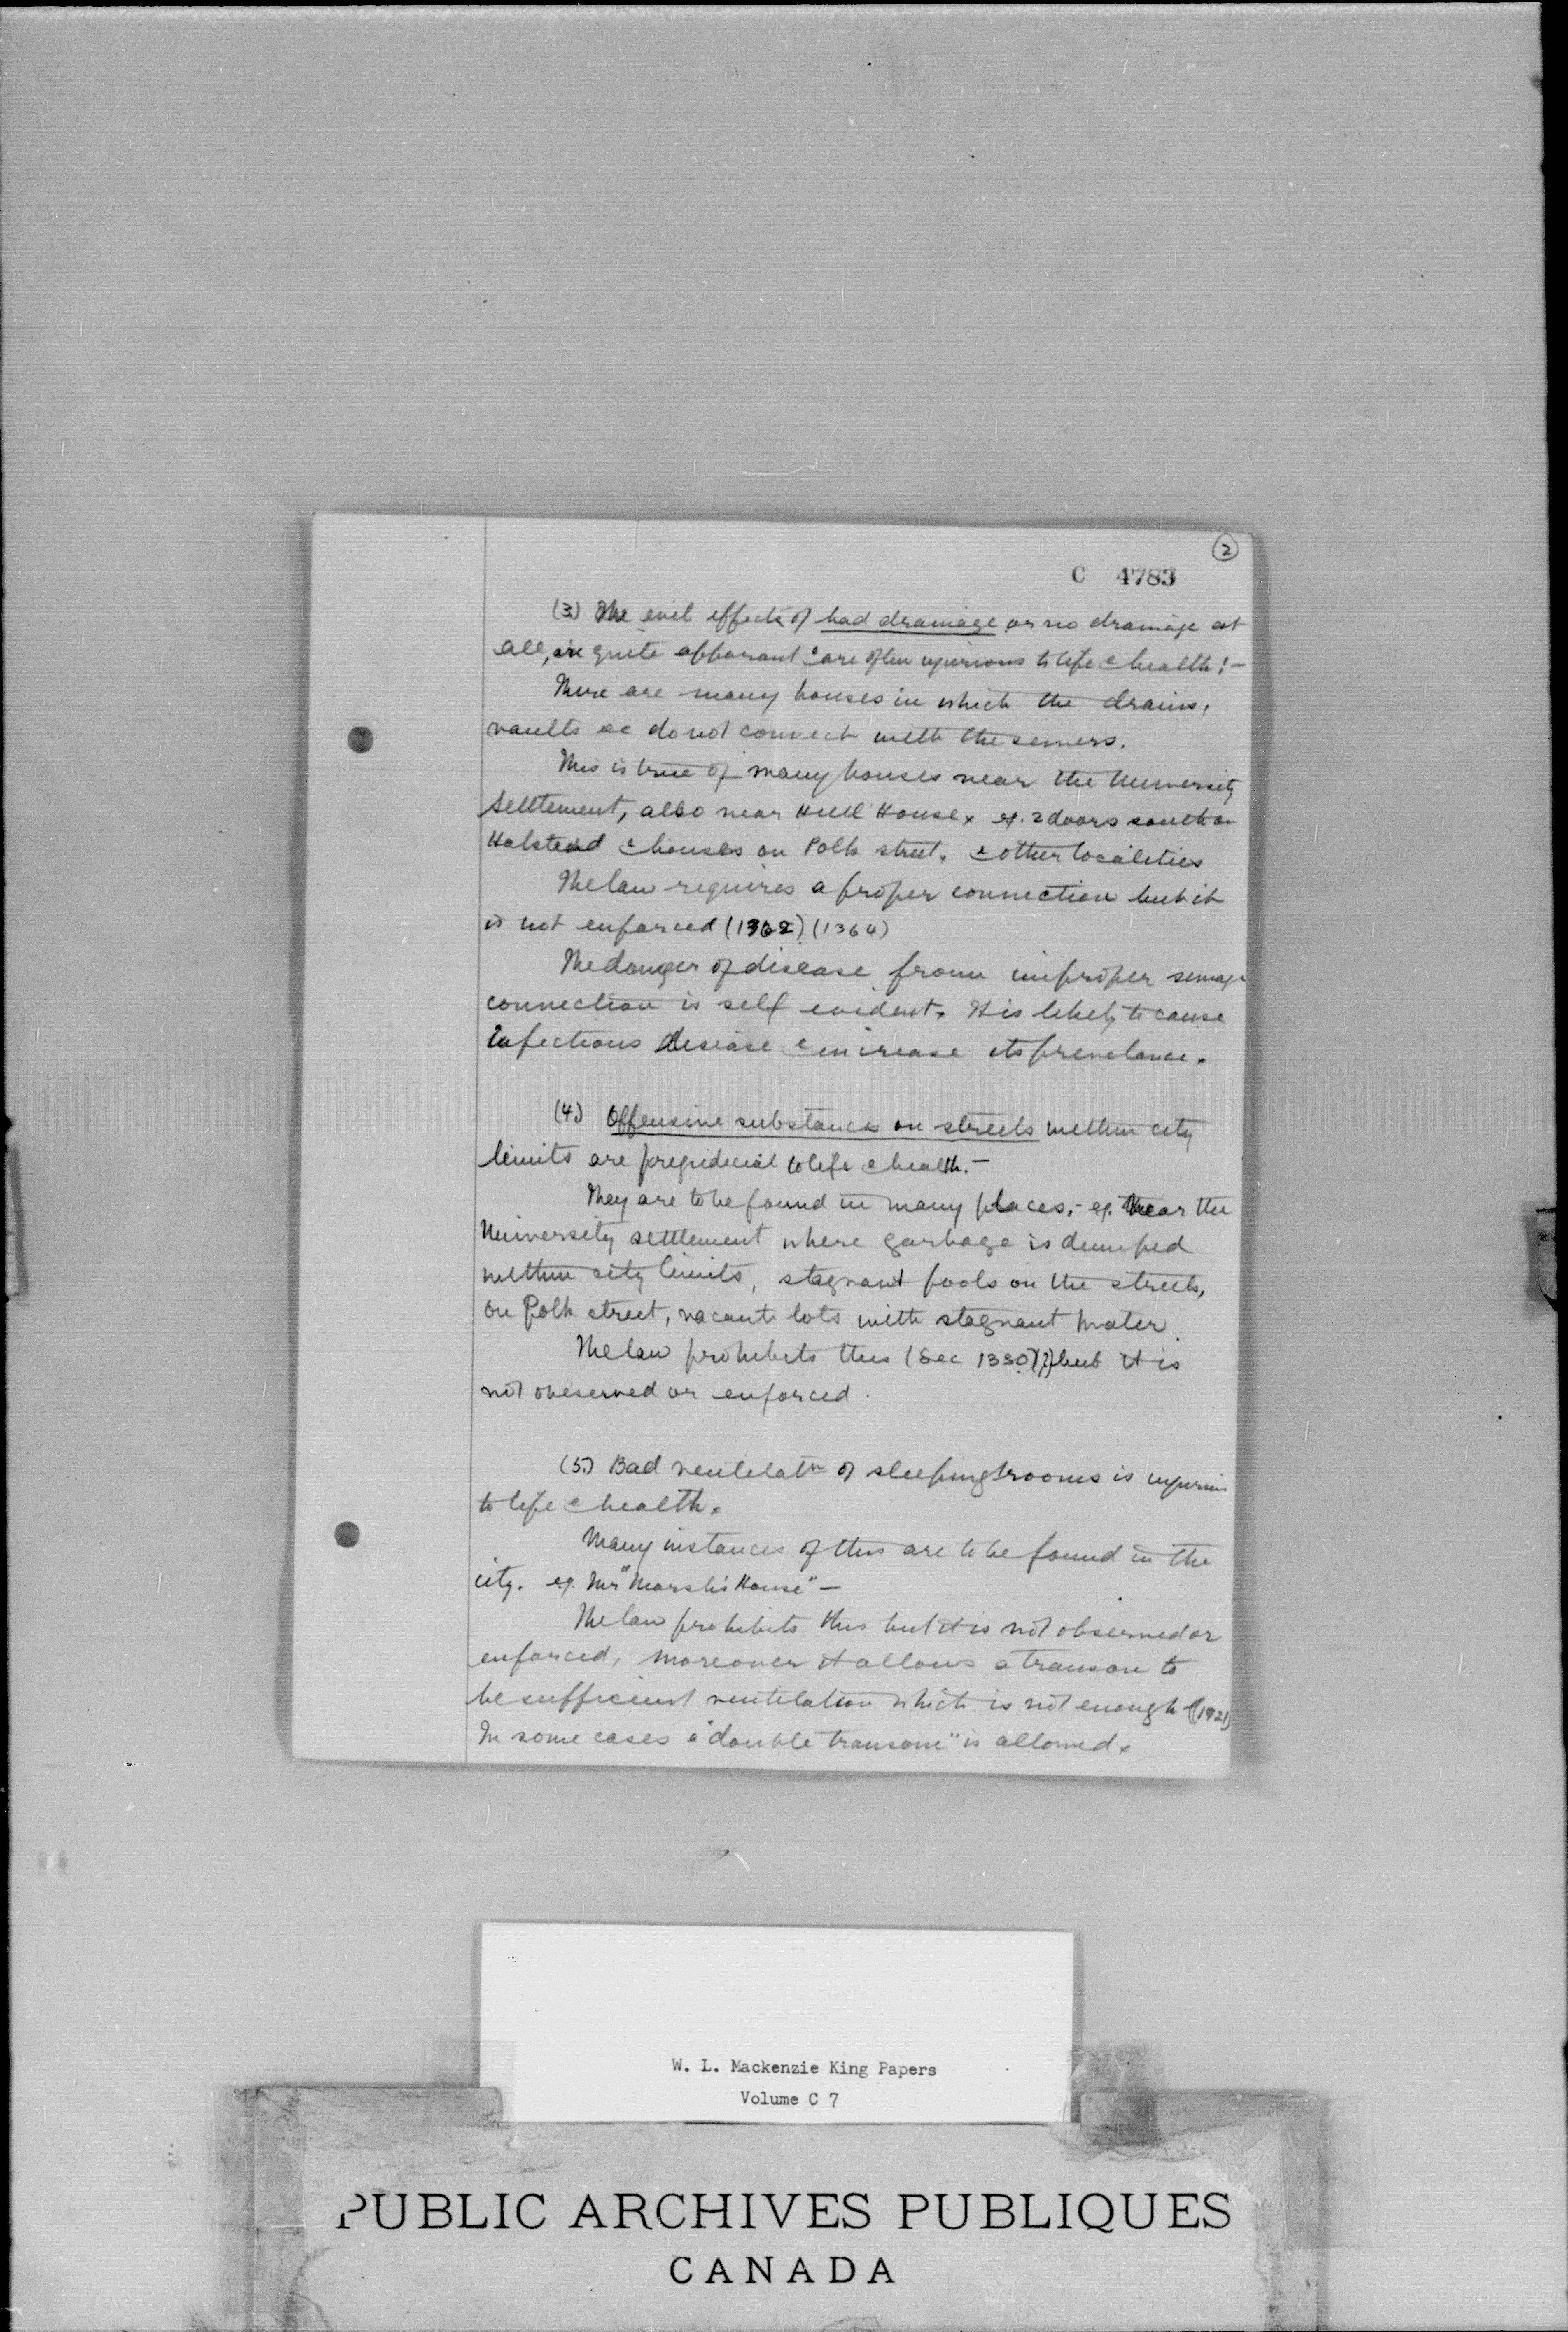 2
C 4783
(3.) The evil effects of bad drainage or no drainage at
all, are quite apparant & are often injurious to life & health:-
There are many houses in which the drains,
vaults &c do not connect with the sewers.
This is true of many houses near the University
Settlement, also near Hull House. eg. 2 doors south on
Halstead & houses on Polk street. & other localities
The law requires a proper connection but it
is not enforced (1362) (1364)
The danger of disease from improper sewage
connection is self evident. It is likely to cause
infectious disease & increase its prevelance.
(4.) Offensive substances on streets within city
limits are prejudicial to life & health.-
They are to be found in many places,- eg. Near the
University settlement where garbage is dumped
within city limits, stagnant pools on the streets,
on Polk street, vacant lots with stagnant water.
The law prohibits this (Sec 1380)(?) but it is
not oveserved or enforced.
(5.) Bad ventilatn of sleeping rooms is injurious
to life & health.
Many instances of this are to be found in the
city. eg. Mr "Marsh's House" -
The law prohibits this but it is not observed or
enforced, moreover it allows a transom to
be sufficient ventilation which is not enough (1921)
In some cases a "double transom" is allowed.
W. L. Mackenzie King Papers
Volume C 7
PUBLIC ARCHIVES PUBLIQUES
CANADA